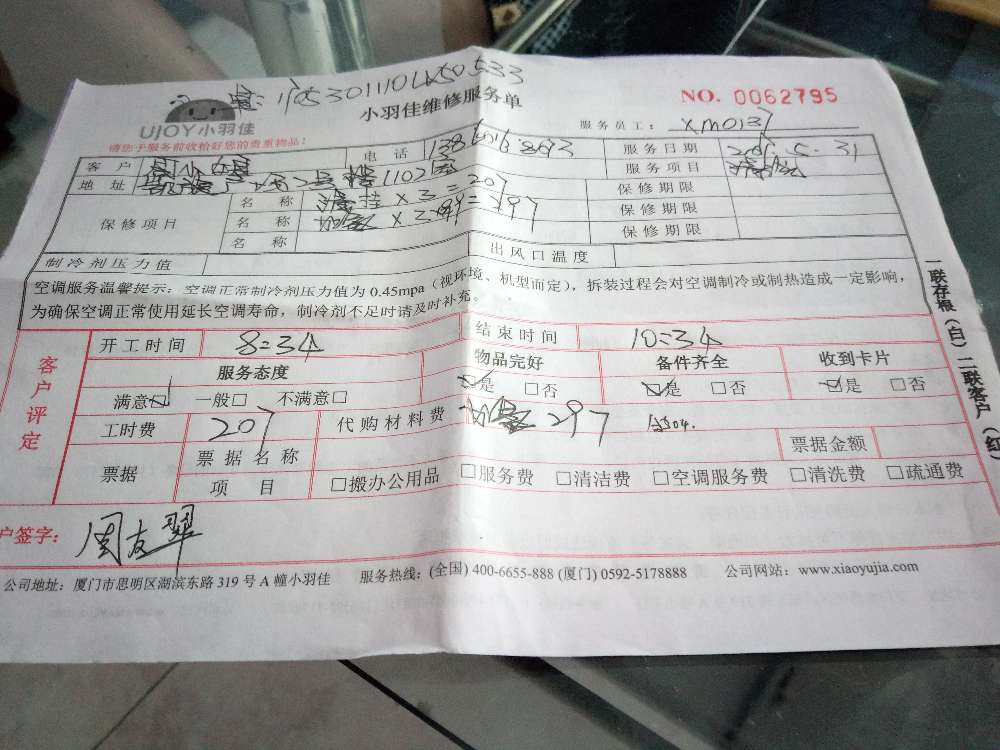 NO. 0062795
UJOY小羽佳
小羽佳维修服务单
请您于服务前收拾好您的贵重物品！
服务员工： XM0137
客户 电话 服务日期 5.31
地址 1102 服务项目
保修项目 名称 挂 X 3 = 207 保修期限
名称 297 保修期限
名称 保修期限
制冷剂压力值 出风口温度
空调服务温馨提示：空调正常制冷剂压力值为 0.45mpa（视环境、机型而定），拆装过程会对空调制冷或制热造成一定影响，
为确保空调正常使用延长空调寿命，制冷剂不足时请及时补充。
客户评定
开工时间 8:34 结束时间 10:34
服务态度 物品完好 备件齐全 收到卡片
满意☑ 一般□ 不满意□ ☑是 □否 ☑是 □否 ☑是 □否
工时费 207 代购材料费 297
票据 票据名称 票据金额
项目 □搬办公用品 □服务费 □清洁费 □空调服务费 □清洗费 □疏通费
户签字： 周友翠
公司地址：厦门市思明区湖滨东路 319 号 A 幢小羽佳 服务热线：(全国) 400-6655-888 (厦门) 0592-5178888 公司网站：www.xiaoyujia.com
一联存根（白）二联客户（红）